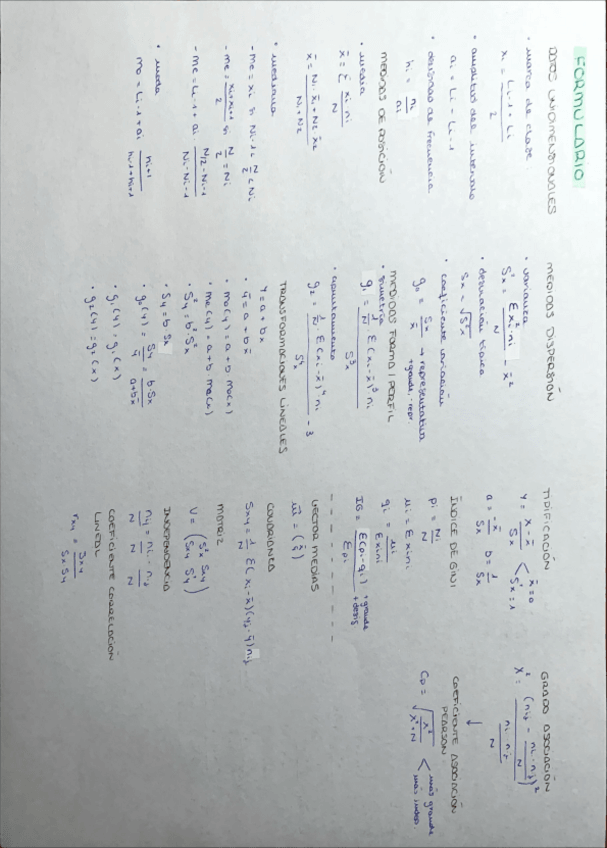 FORMULARIO
DATOS UNIDIMENSIONALES
• marca de clase
xi = (Li-1 + Li) / 2
• amplitud del intervalo
ai = Li - Li-1
• densidad de frecuencia
hi = ni / ai
MEDIDAS DE POSICIÓN
• media
x̄ = Σ xi ni / N
x̄ = (N1 · x̄1 + N2 x̄2) / (N1 + N2)
• mediana
- Me = xi si Ni-1 < N/2 < Ni
- Me = (xi + xi+1) / 2 si N/2 = Ni
- Me = Li-1 + ai (N/2 - Ni-1) / (Ni - Ni-1)
• moda
Mo = Li-1 + ai hi+1 / (hi-1 + hi+1)
MEDIDAS DISPERSIÓN
• varianza
S²x = Σ xi² ni / N - x̄²
• desviación típica
Sx = √S²x
• coeficiente variación
g0 = Sx / x̄ → representativa
+ grande, - repr.
MEDIDAS FORMA / PERFIL
• simetría
g1 = 1/N Σ (xi - x̄)³ ni / S³x
• apuntamiento
g2 = 1/N · Σ (xi - x̄)⁴ ni / S⁴x - 3
TRANSFORMACIONES LINEALES
y = a + bx
• ȳ = a + b x̄
• Mo(y) = a + b Mo(x)
• Me(y) = a + b Me(x)
• S²y = b² S²x
• Sy = b Sx
• g0(y) = Sy / ȳ = b Sx / (a + b x̄)
• g1(y) = g1(x)
• g2(y) = g2(x)
TIPIFICACIÓN
y = (x - x̄) / Sx < x̄ = 0
S²x = 1
a = -x̄ / Sx b = 1 / Sx
ÍNDICE DE GINI
pi = Ni / N
ui = Σ xi ni
qi = ui / Σ xi ni
IG = Σ (pi - qi) / Σ pi + grande
+ desig
VECTOR MEDIAS
m̄ = (x̄ ȳ)
COVARIANZA
Sxy = 1/N Σ (xi - x̄)(yj - ȳ) nij
MATRIZ
V = (S²x Sxy
Sxy S²y)
INDEPENDENCIA
nij / N = ni· / N · n·j / N
COEFICIENTE CORRELACIÓN
LINEAL
rxy = Sxy / Sx Sy
GRADO ASOCIACIÓN
X² = (nij - ni· · n·j / N)² / (ni· · n·j / N)
↓
COEFICIENTE ASOCIACIÓN
PEARSON
CP = √(X² / (X² + N)) < más grande